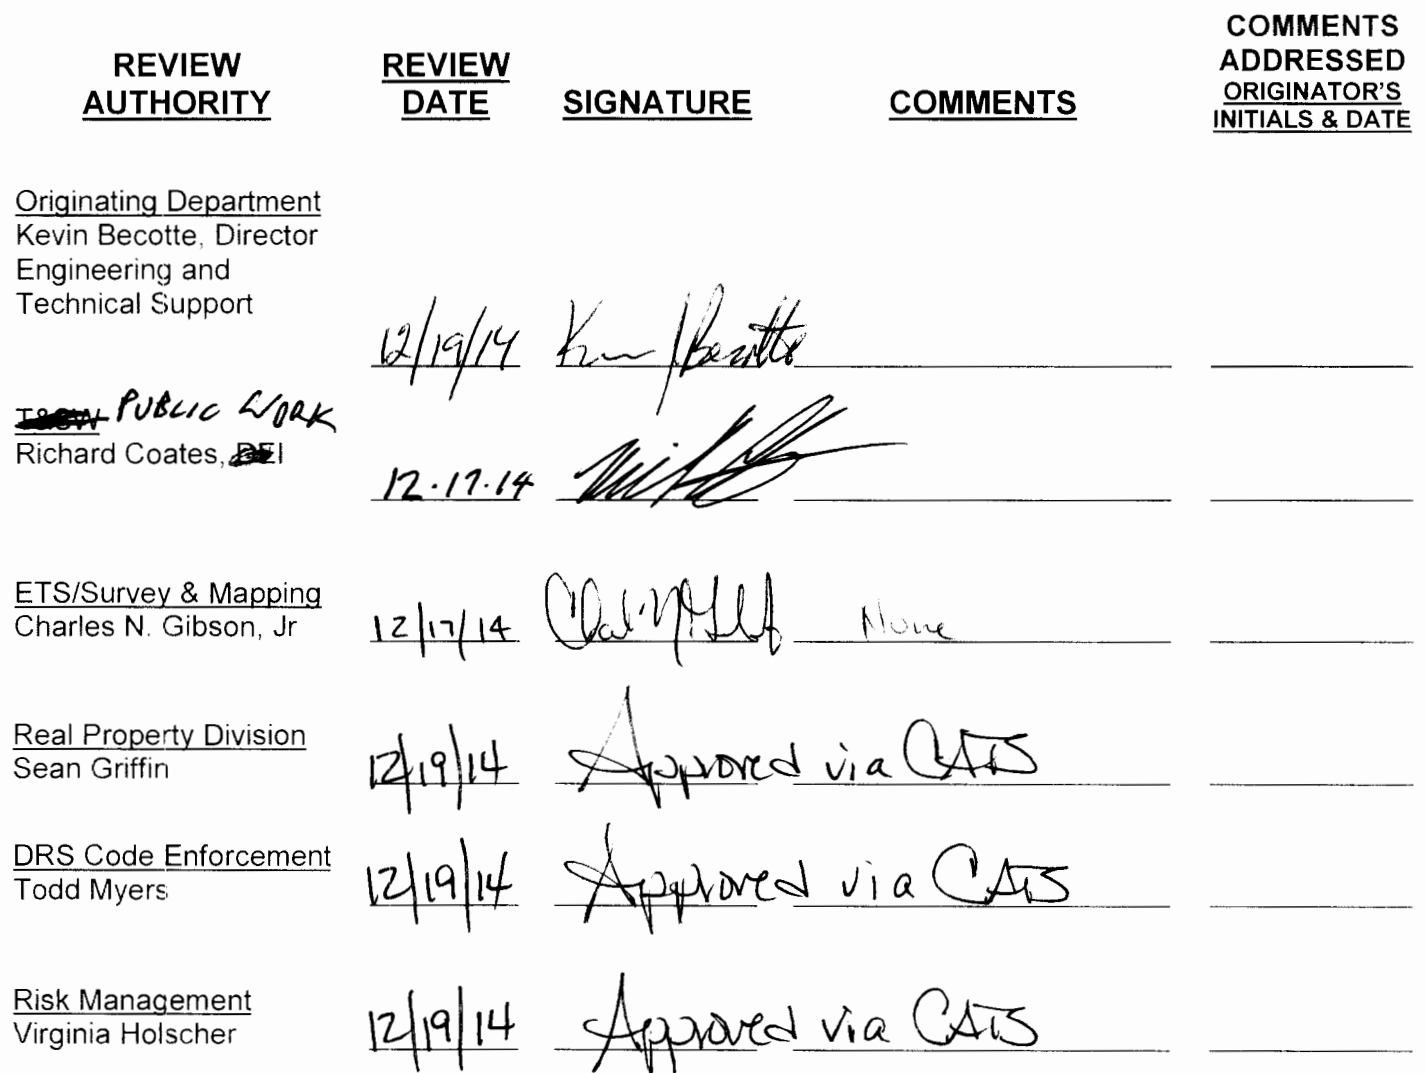 REVIEW
AUTHORITY
REVIEW
DATE
SIGNATURE
COMMENTS
COMMENTS
ADDRESSED
ORIGINATOR'S
INITIALS & DATE
Originating Department
Kevin Becotte, Director
Engineering and
Technical Support
12/19/14 Kevin Becotte
PUBLIC WORK
Richard Coates,
12.17.14
ETS/Survey & Mapping
Charles N. Gibson, Jr
12/17/14 None
Real Property Division
Sean Griffin
12/19/14 Approved via CATS
DRS Code Enforcement
Todd Myers
12/19/14 Approved via CATS
Risk Management
Virginia Holscher
12/19/14 Approved via CATS